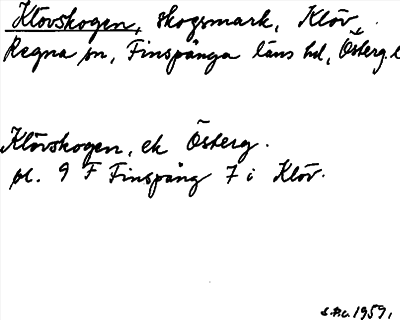 Klövskogen, skogsmark, Klöv,
Regna sn, Finspånga läns hd, Österg. l
Klövskogen, ek Österg.
bl. 9 F Finspång 7 i Klöv.
1959.